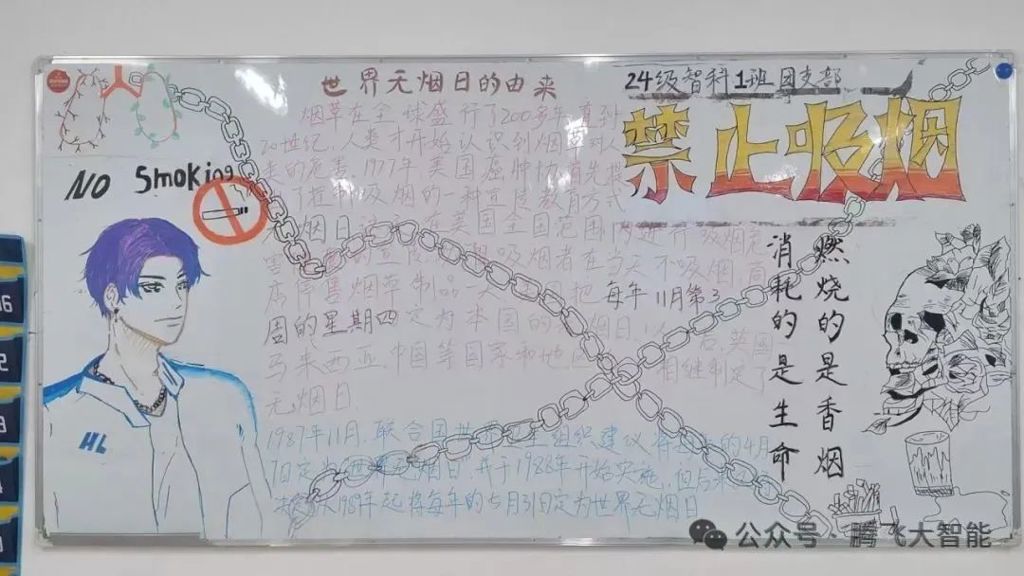 世界无烟日的由来
24级智科1班团支部
禁止吸烟
NO Smoking
烟草在全球盛行了200多年,直到
20世纪,人类才开始认识到烟草对人
的危害,1977年,美国癌肿协会首先提
了控制吸烟的一种宣传教育方式
烟日 在美国全国范围内进行 吸烟危
害 吸烟者在当天不吸烟,商
店停售烟草制品一天 把 每年11月第3
周的星期四定为本国的 烟日,以 后,英国
马来西亚,中国等国家和地区 相继制定了
无烟日.
1987年11月,联合国世 组织建议将 的4月
7日定为世界无烟日,并于1988年开始实施,但 
从1989年起将每年的5月31日定为世界无烟日
燃烧的是香烟
消耗的是生命
HL
公众号·腾飞大智能